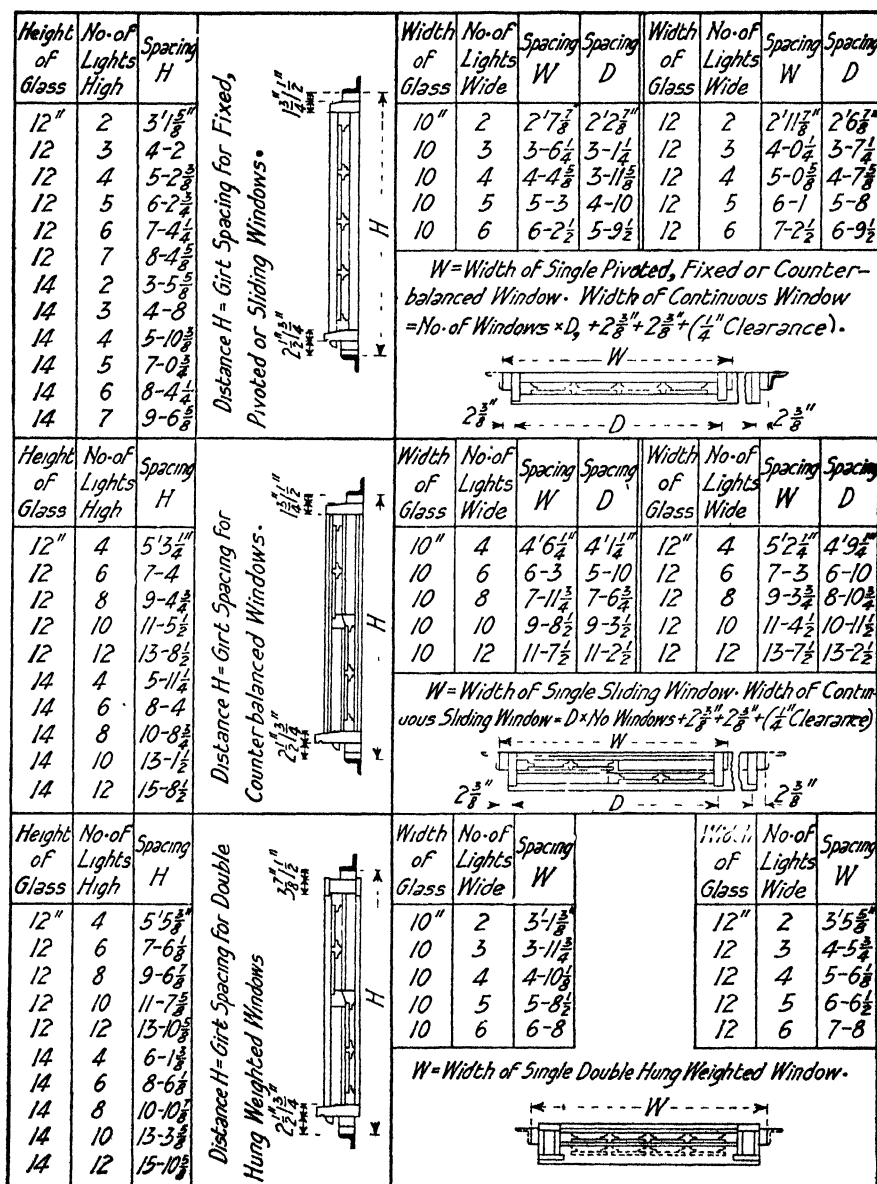 Height of Glass | No. of Lights High | Spacing H
12" | 2 | 3'1 5/8"
12 | 3 | 4-2
12 | 4 | 5-2 3/8
12 | 5 | 6-2 3/4
12 | 6 | 7-4 1/4
12 | 7 | 8-4 5/8
14 | 2 | 3-5 5/8
14 | 3 | 4-8
14 | 4 | 5-10 3/8
14 | 5 | 7-0 3/4
14 | 6 | 8-4 1/4
14 | 7 | 9-6 5/8
Distance H = Girt Spacing for Fixed,
Pivoted or Sliding Windows.
1 3/4" 1/2"
H
2 1/2" 1 3/4"
Width of Glass | No. of Lights Wide | Spacing W | Spacing D | Width of Glass | No. of Lights Wide | Spacing W | Spacing D
10" | 2 | 2'7 7/8" | 2'2 7/8" | 12 | 2 | 2'11 7/8" | 2'6 7/8"
10 | 3 | 3-6 1/4 | 3-1 1/4 | 12 | 3 | 4-0 1/4 | 3-7 1/4
10 | 4 | 4-4 5/8 | 3-11 5/8 | 12 | 4 | 5-0 5/8 | 4-7 5/8
10 | 5 | 5-3 | 4-10 | 12 | 5 | 6-1 | 5-8
10 | 6 | 6-2 1/2 | 5-9 1/2 | 12 | 6 | 7-2 1/2 | 6-9 1/2
W = Width of Single Pivoted, Fixed or Counter-
balanced Window. Width of Continuous Window
= No. of Windows × D, + 2 3/8" + 2 3/8" + (1/4" Clearance).
W
2 3/8" D 2 3/8"
Height of Glass | No. of Lights High | Spacing H
12" | 4 | 5'3 1/4"
12 | 6 | 7-4
12 | 8 | 9-4 3/4
12 | 10 | 11-5 1/2
12 | 12 | 13-8 1/2
14 | 4 | 5-11 1/4
14 | 6 | 8-4
14 | 8 | 10-8 3/4
14 | 10 | 13-1 1/2
14 | 12 | 15-8 1/2
Distance H = Girt Spacing for
Counterbalanced Windows.
1 3/4" 1/2"
H
2 1/2" 1 3/4"
Width of Glass | No. of Lights Wide | Spacing W | Spacing D | Width of Glass | No. of Lights Wide | Spacing W | Spacing D
10" | 4 | 4'6 1/4" | 4'1 1/4" | 12" | 4 | 5'2 1/4" | 4'9 1/4"
10 | 6 | 6-3 | 5-10 | 12 | 6 | 7-3 | 6-10
10 | 8 | 7-11 3/4 | 7-6 3/4 | 12 | 8 | 9-3 3/4 | 8-10 3/4
10 | 10 | 9-8 1/2 | 9-3 1/2 | 12 | 10 | 11-4 1/2 | 10-11 1/2
10 | 12 | 11-7 1/2 | 11-2 1/2 | 12 | 12 | 13-7 1/2 | 13-2 1/2
W = Width of Single Sliding Window. Width of Contin-
uous Sliding Window = D × No Windows + 2 3/8" + 2 3/8" + (1/4" Clearance)
W
2 3/8" D 2 3/8"
Height of Glass | No. of Lights High | Spacing H
12" | 4 | 5'5 3/8"
12 | 6 | 7-6 1/8
12 | 8 | 9-6 7/8
12 | 10 | 11-7 5/8
12 | 12 | 13-10 5/8
14 | 4 | 6-1 3/8
14 | 6 | 8-6 1/8
14 | 8 | 10-10 7/8
14 | 10 | 13-3 5/8
14 | 12 | 15-10 5/8
Distance H = Girt Spacing for Double
Hung Weighted Windows
7/8" 1/2"
H
2 1/2" 1 3/4"
Width of Glass | No. of Lights Wide | Spacing W | Width of Glass | No. of Lights Wide | Spacing W
10" | 2 | 3'-1 3/8" | 12" | 2 | 3'5 5/8"
10 | 3 | 3-11 3/4 | 12 | 3 | 4-5 3/4
10 | 4 | 4-10 1/8 | 12 | 4 | 5-6 1/8
10 | 5 | 5-8 1/2 | 12 | 5 | 6-6 1/2
10 | 6 | 6-8 | 12 | 6 | 7-8
W = Width of Single Double Hung Weighted Window.
W